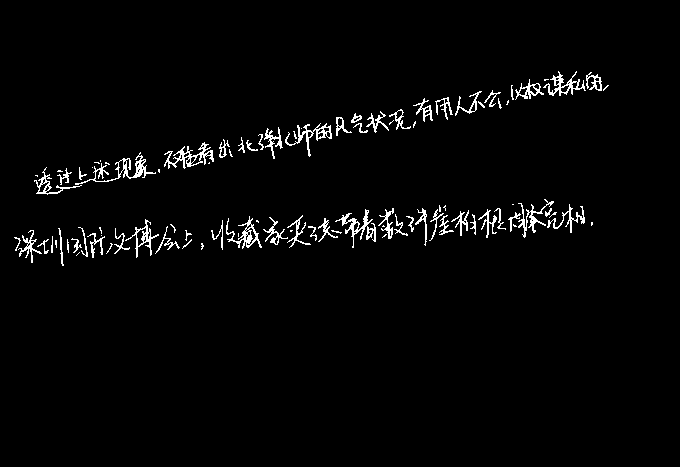 透过上述现象,不难看出北洋水师的风气状况,有用人不公,以权谋私的
深圳国际文博会上,收藏家夹着带着数件崖柏根雕亮相.